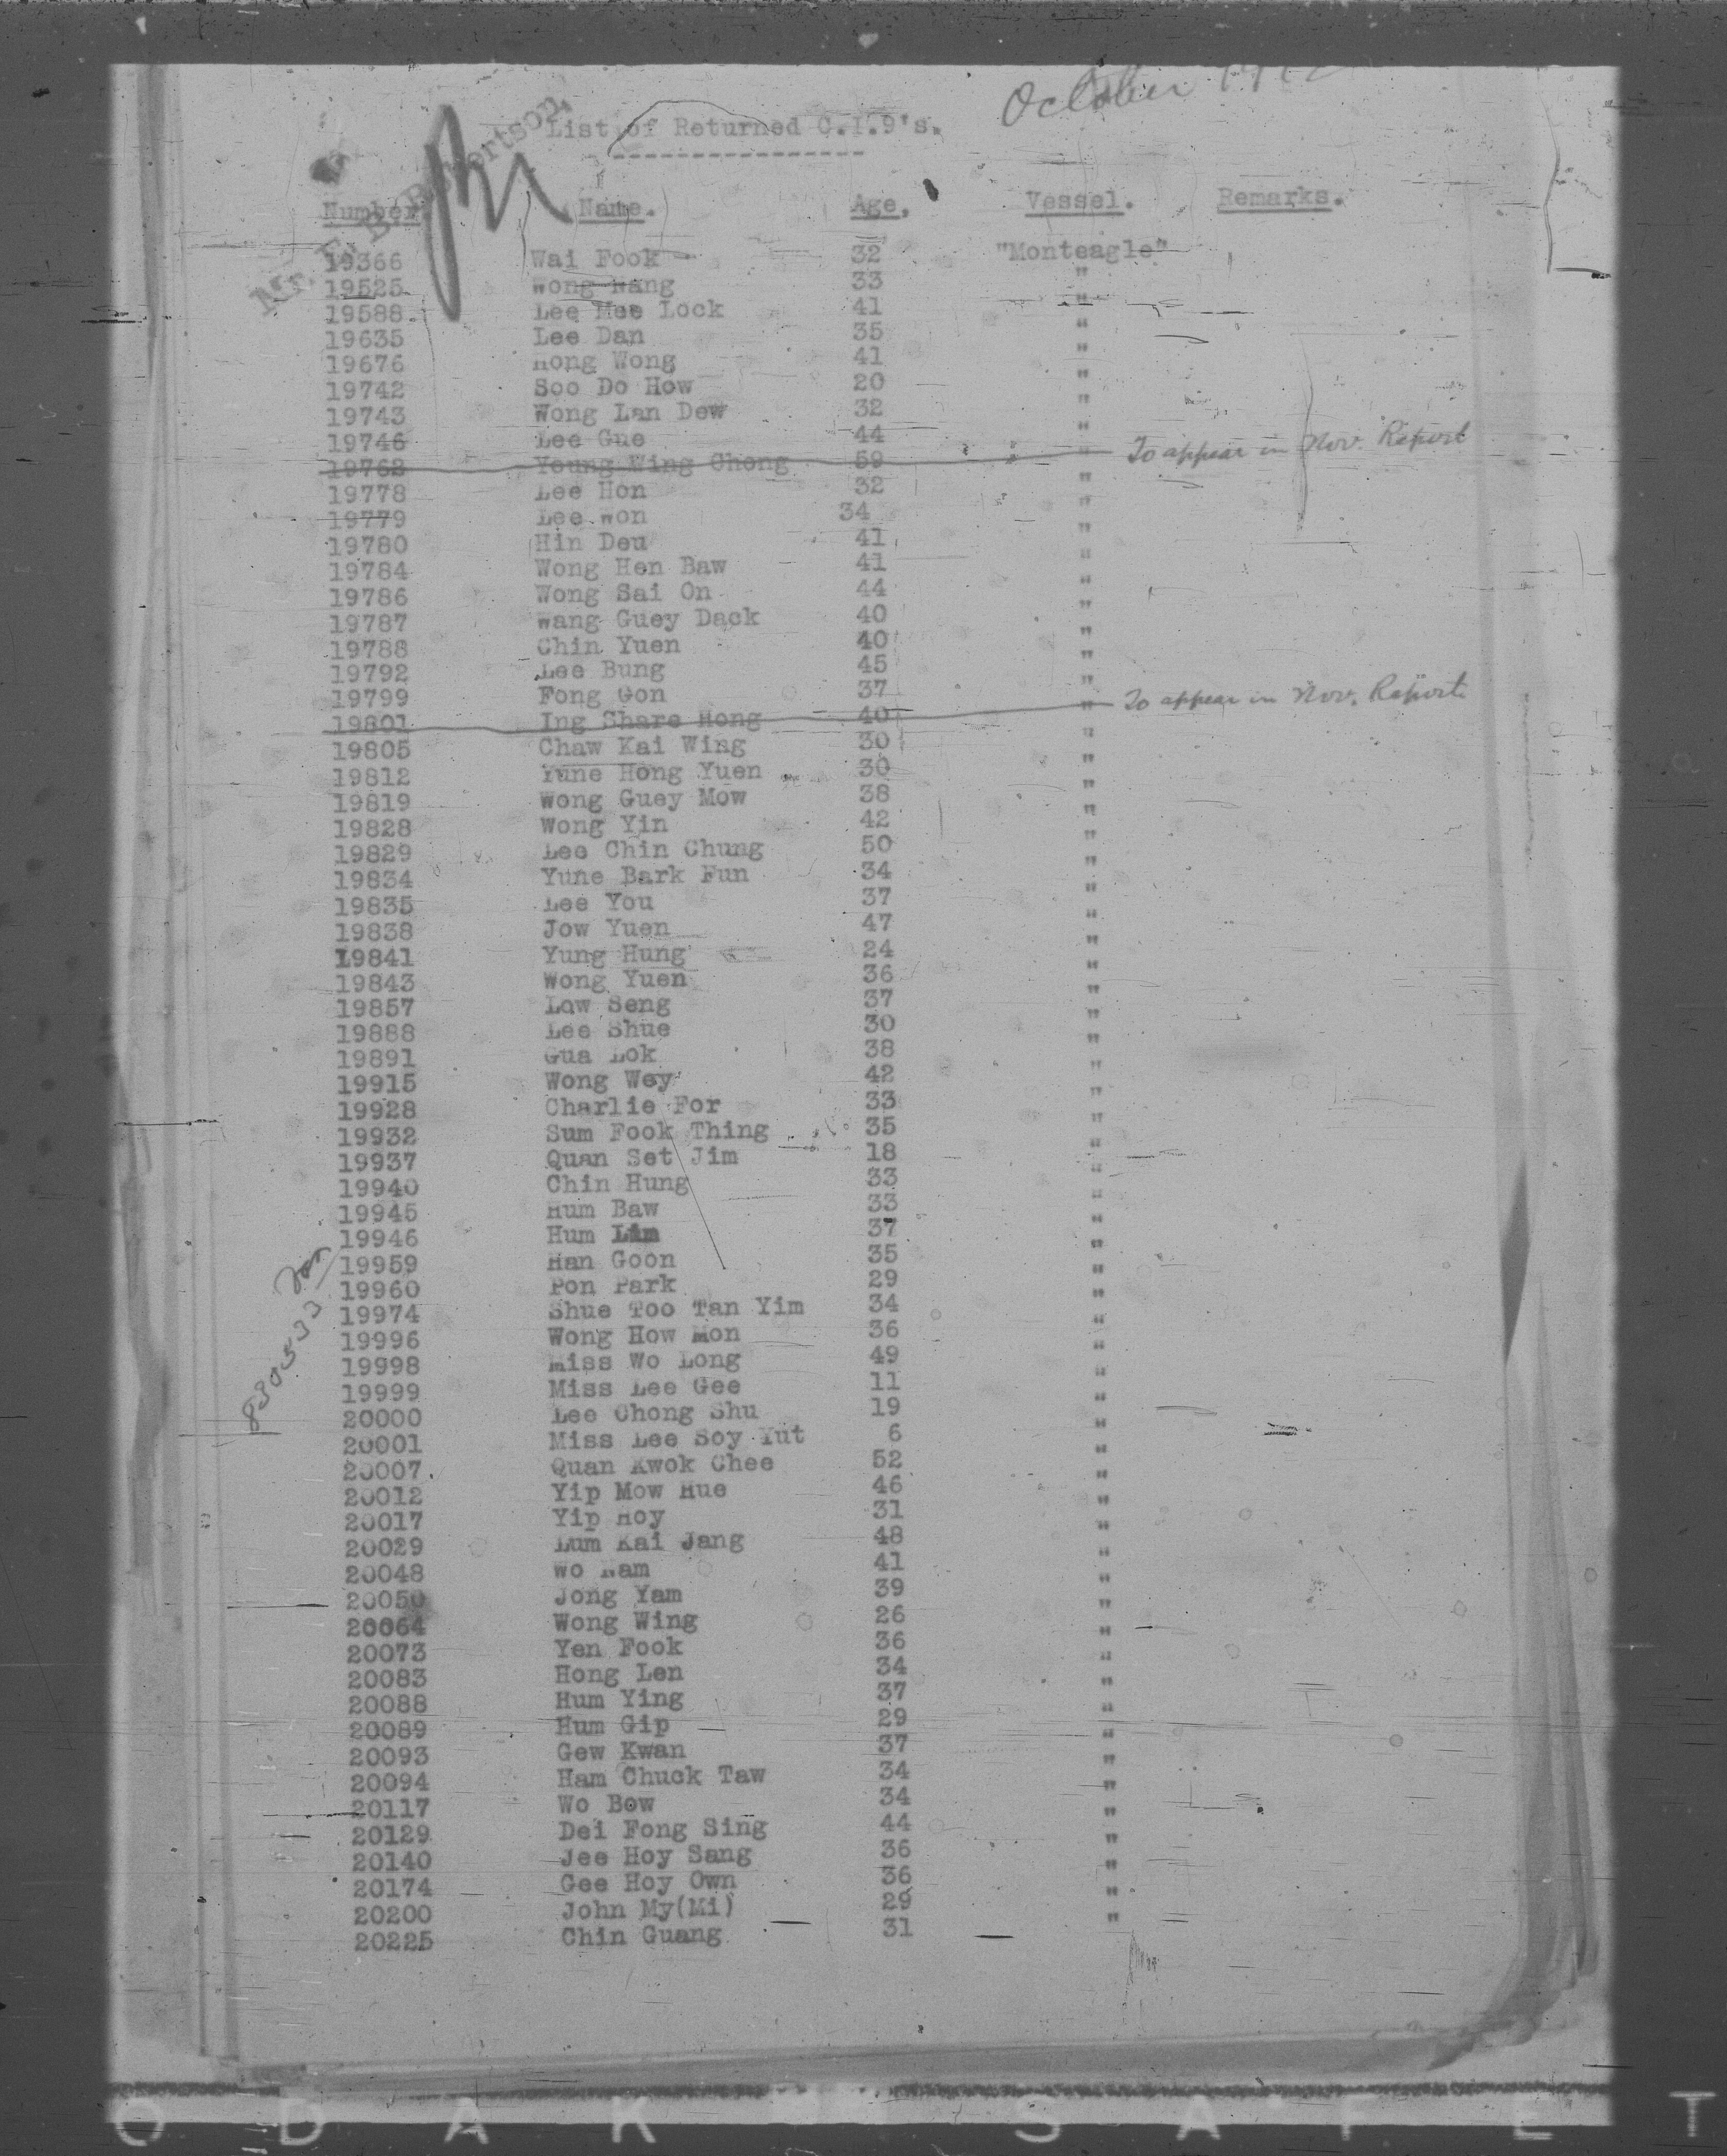 October
List of Returned C.I.9's.
Mr. E. B. Robertson
Number. Name. Age. Vessel. Remarks.
19366 Wai Fook 32 "Monteagle"
19525 Wong Wang 33 "
19588 Lee Mee Lock 41 "
19635 Lee Dan 35 "
19676 Hong Wong 41 "
19742 Soo Do How 20 "
19743 Wong Lan Dew 32 "
19746 Lee Gue 44 "
19762 Young Wing Chong 59 " To appear in Nov. Report
19778 Lee Hon 32 "
19779 Lee Won 34 "
19780 Hin Deu 41 "
19784 Wong Hen Baw 41 "
19786 Wong Sai On 44 "
19787 Wang Guey Dack 40 "
19788 Chin Yuen 40 "
19792 Lee Bung 45 "
19799 Fong Gon 37 "
19801 Ing Share Hong 40 " To appear in Nov. Report.
19805 Chaw Kai Wing 30 "
19812 Yune Hong Yuen 30 "
19819 Wong Guey Mow 38 "
19828 Wong Yin 42 "
19829 Lee Chin Chung 50 "
19834 Yune Bark Fun 34 "
19835 Lee You 37 "
19838 Jow Yuen 47 "
19841 Yung Hung 24 "
19843 Wong Yuen 36 "
19857 Low Seng 37 "
19888 Lee Shue 30 "
19891 Gua Lok 38 "
19915 Wong Wey 42 "
19928 Charlie For 33 "
19932 Sum Fook Thing 35 "
19937 Quan Set Jim 18 "
19940 Chin Hung 33 "
19945 Hum Baw 33 "
19946 Hum Lim 37 "
19959 Han Goon 35 "
19960 Pon Park 29 "
19974 Shue Too Tan Yim 34 "
19996 Wong How Mon 36 "
19998 Miss Wo Long 49 "
19999 Miss Lee Gee 11 "
20000 Lee Chong Shu 19 "
20001 Miss Lee Soy Yut 6 "
20007. Quan Kwok Chee 52 "
20012 Yip Mow Hue 46 "
20017 Yip Hoy 31 "
20029 Lum Kai Jang 48 "
20048 Wo Nam 41 "
20050 Jong Yam 39 "
20064 Wong Wing 26 "
20073 Yen Fook 36 "
20083 Hong Len 34 "
20088 Hum Ying 37 "
20089 Hum Gip 29 "
20093 Gew Kwan 37 "
20094 Ham Chuck Taw 34 "
20117 Wo Bow 34 "
20129 Dei Fong Sing 44 "
20140 Jee Hoy Sang 36 "
20174 Gee Hoy Own 36 "
20200 John My(Mi) 29 "
20225 Chin Guang 31 "
830533
O D A K S A F E T